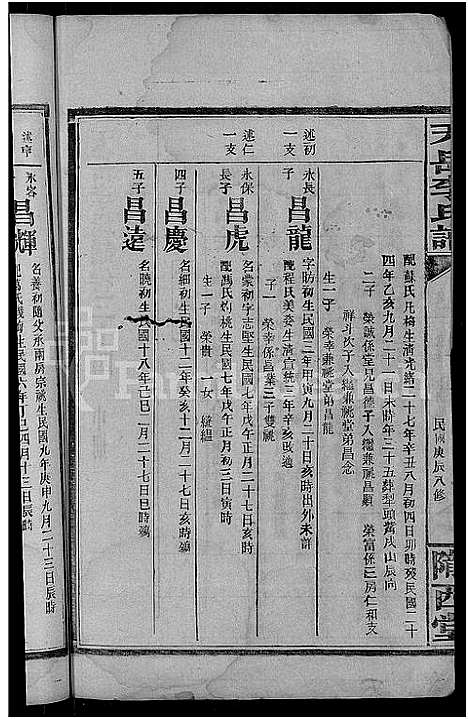 天岳李氏譜
民國庚辰八修
隴西堂
配蘇氏凡梅生清光緒二十七年辛丑八月初四日卯時歿民國二十
四年乙亥九月二十一日未時年三十五葬犁頭嘴戌山辰向
二子 榮誠係堂兄昌德子入繼兼祧昌顯 榮富係三房仁和支
祥斗次子入繼兼祧堂弟昌念
生一子 榮幸兼祧堂弟昌龍
述初一支
永長子
昌龍
字昉初生民國三年甲寅九月二十日亥時出外未詳
配程氏美姿生清宣統三年辛亥改適
子一 榮幸係昌業三子雙祧
述仁一支
永保長子
昌虎
名蒙初字志堅生民國七年戊午正月二十七日亥時
配馮氏灼桃生民國七年戊午正月初三日寅時
生一子 榮貴 一女 縫縕
四子
昌慶
名細初生民國十二年癸亥十二月二十七日亥時殤
五子
昌達
名曉初生民國十八年己巳二月二十七日巳時殤
述卓
永容
昌輝
名養初隨父承兩房宗祧生民國九年庚申九月二十三日辰時
生民國六年丁巳四月十三日辰時